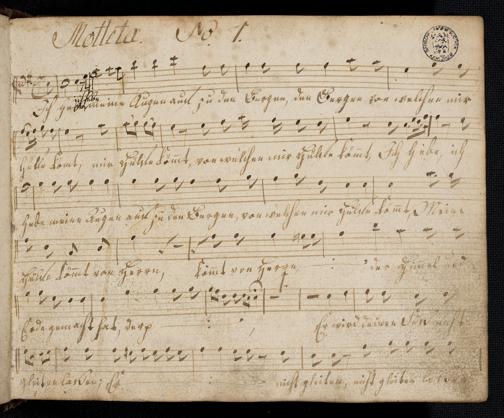 Motteta No 1.
Ich hebe meine Augen auf zu den Bergen, den Bergen von welchen mir
Hülfe komt, mir Hülfe kömt, von welchen mir Hülfe kömt, Ich hebe, ich
hebe meine Augen auf zu den Bergen, von welchen mir Hülfe kömt, Meine
Hülfe kömt vom Herrn, kömt vom Herrn der Himmel und
Erde gemacht hat, Er wird deinen Fuß nicht
gleiten laßen, nicht gleiten, nicht gleiten laßen